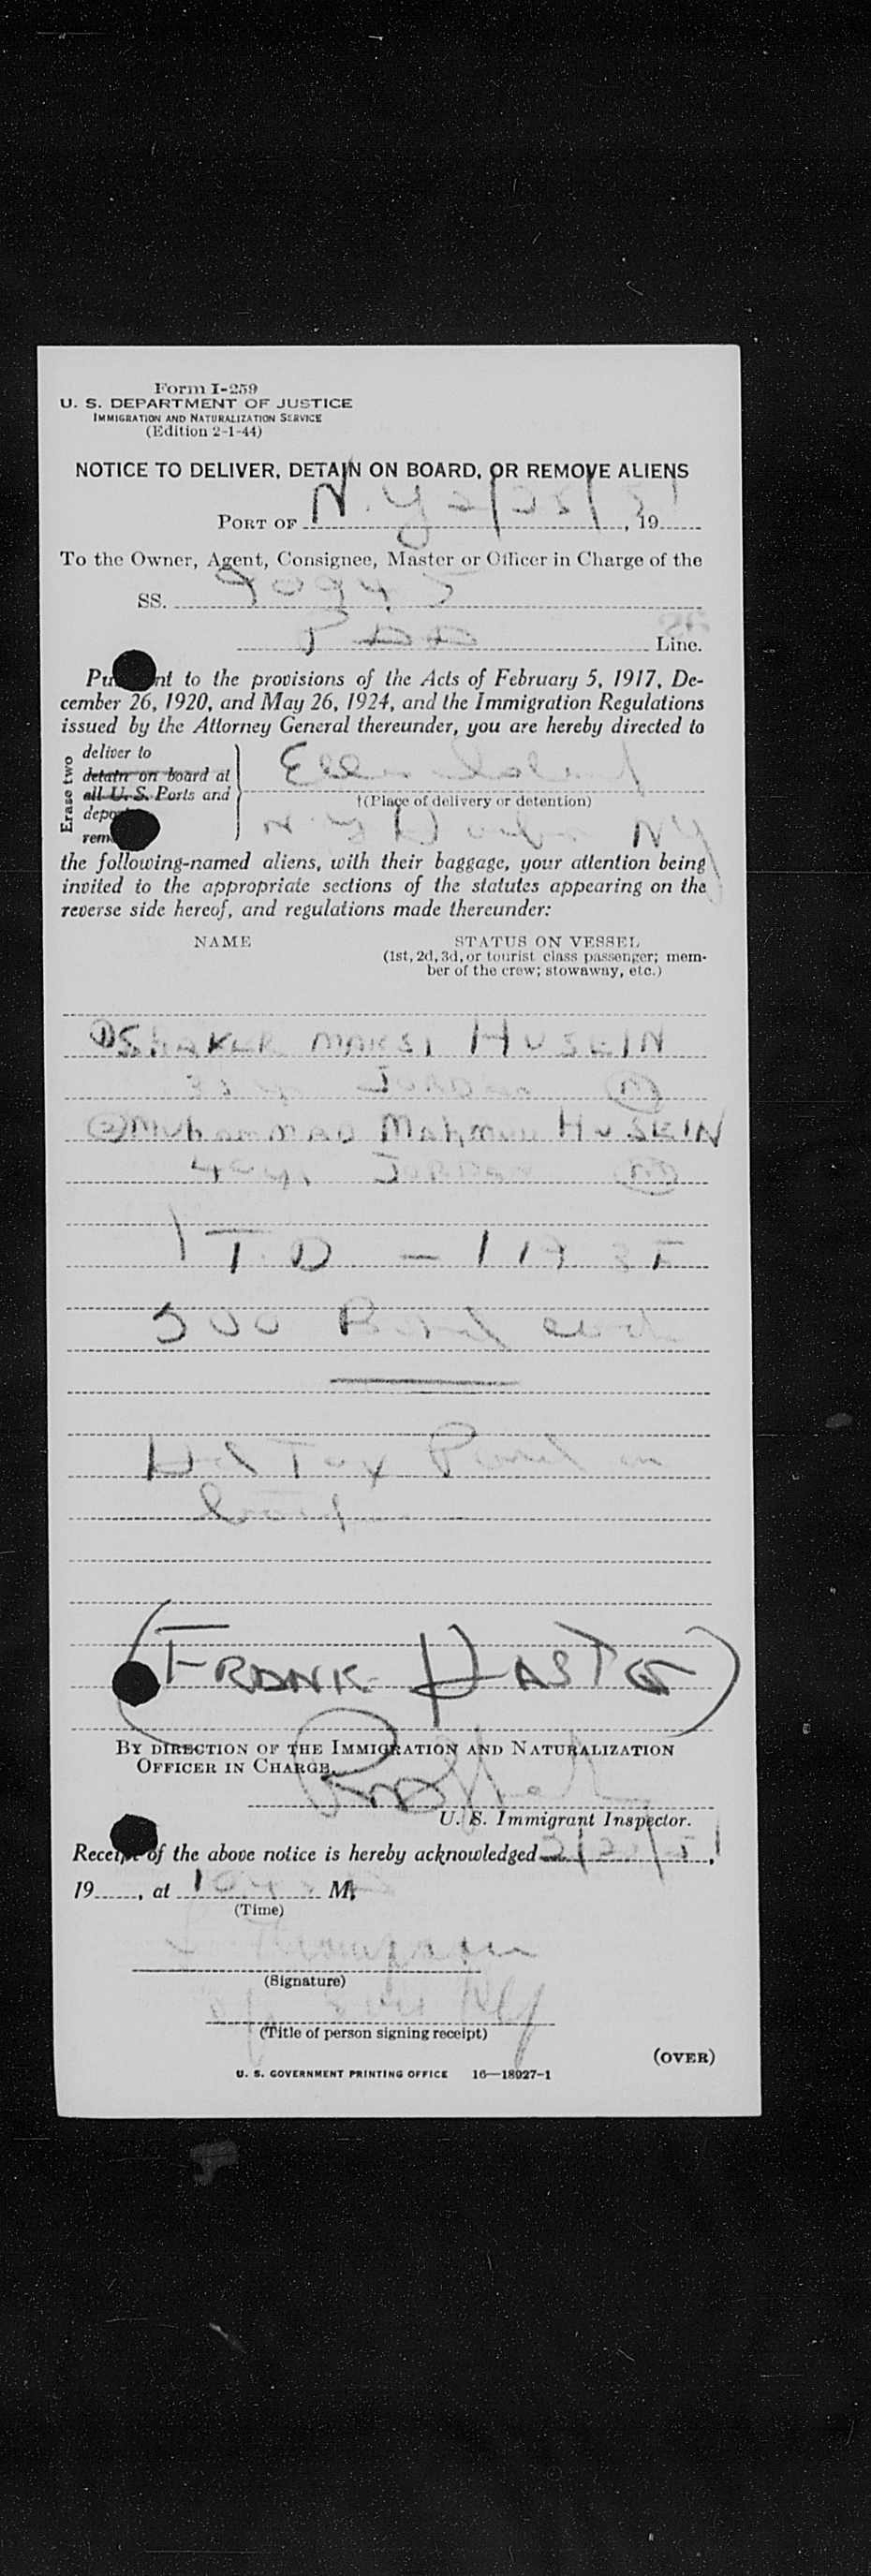 Form I-259
U. S. DEPARTMENT OF JUSTICE
IMMIGRATION AND NATURALIZATION SERVICE
(Edition 2-1-44)
NOTICE TO DELIVER, DETAIN ON BOARD, OR REMOVE ALIENS
PORT OF N.Y. 2/ / 51, 19
To the Owner, Agent, Consignee, Master or Officer in Charge of the
SS. 9094
Line.
to the provisions of the Acts of February 5, 1917, De-
cember 26, 1920, and May 26, 1924, and the Immigration Regulations
issued by the Attorney General thereunder, you are hereby directed to
Erase two
deliver to
detain on board at
all U. S. Ports and
Ellis Island
†(Place of delivery or detention)
N.Y. Harbor NY
the following-named aliens, with their baggage, your attention being
invited to the appropriate sections of the statutes appearing on the
reverse side hereof, and regulations made thereunder:
NAME STATUS ON VESSEL
(1st, 2d, 3d, or tourist class passenger; mem-
ber of the crew; stowaway, etc.)
① SHAKER HUSEIN
JORDAN Ⓜ
② MUHAMMAD MAHMUD HUSEIN
JORDAN Ⓜ
T.D. –
500 Bond each
Hd Tax Paid in
(FRANK HASTO)
BY DIRECTION OF THE IMMIGRATION AND NATURALIZATION
OFFICER IN CHARGE.
U. S. Immigrant Inspector.
Receipt of the above notice is hereby acknowledged 2/ /51,
19, at 10 M.
(Time)
Thompson
(Signature)
(Title of person signing receipt)
(OVER)
U. S. GOVERNMENT PRINTING OFFICE 16—18927-1